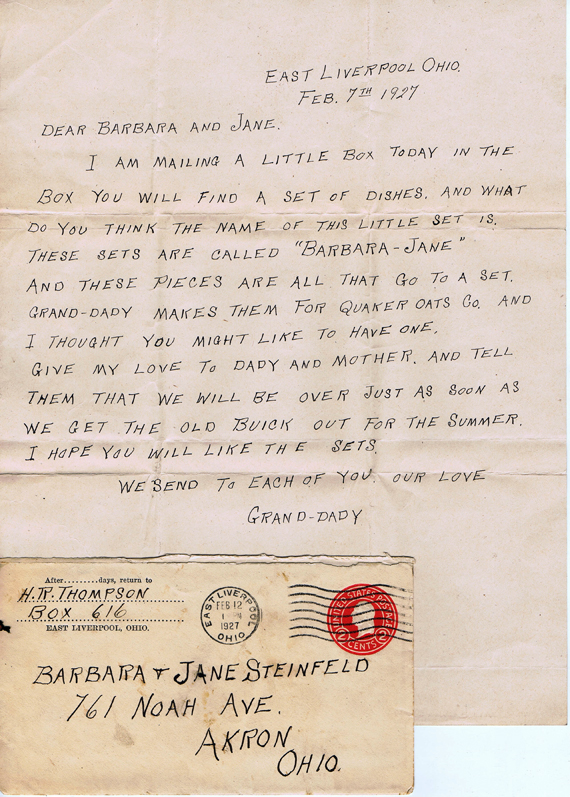 EAST LIVERPOOL OHIO.
FEB. 7TH 1927
DEAR BARBARA AND JANE.
I AM MAILING A LITTLE BOX TODAY IN THE
BOX YOU WILL FIND A SET OF DISHES. AND WHAT
DO YOU THINK THE NAME OF THIS LITTLE SET IS.
THESE SETS ARE CALLED "BARBARA-JANE"
AND THESE PIECES ARE ALL THAT GO TO A SET.
GRAND-DADY MAKES THEM FOR QUAKER OATS CO. AND
I THOUGHT YOU MIGHT LIKE TO HAVE ONE.
GIVE MY LOVE TO DADY AND MOTHER. AND TELL
THEM THAT WE WILL BE OVER JUST AS SOON AS
WE GET THE OLD BUICK OUT FOR THE SUMMER.
I HOPE YOU WILL LIKE THE SETS.
WE SEND TO EACH OF YOU. OUR LOVE
GRAND-DADY
After..........days, return to
H.R. THOMPSON
BOX 616
EAST LIVERPOOL, OHIO.
EAST LIVERPOOL
FEB 12
1927
OHIO
UNITED STATES POSTAGE
2 CENTS 2
BARBARA & JANE STEINFELD
761 NOAH AVE.
AKRON
OHIO.